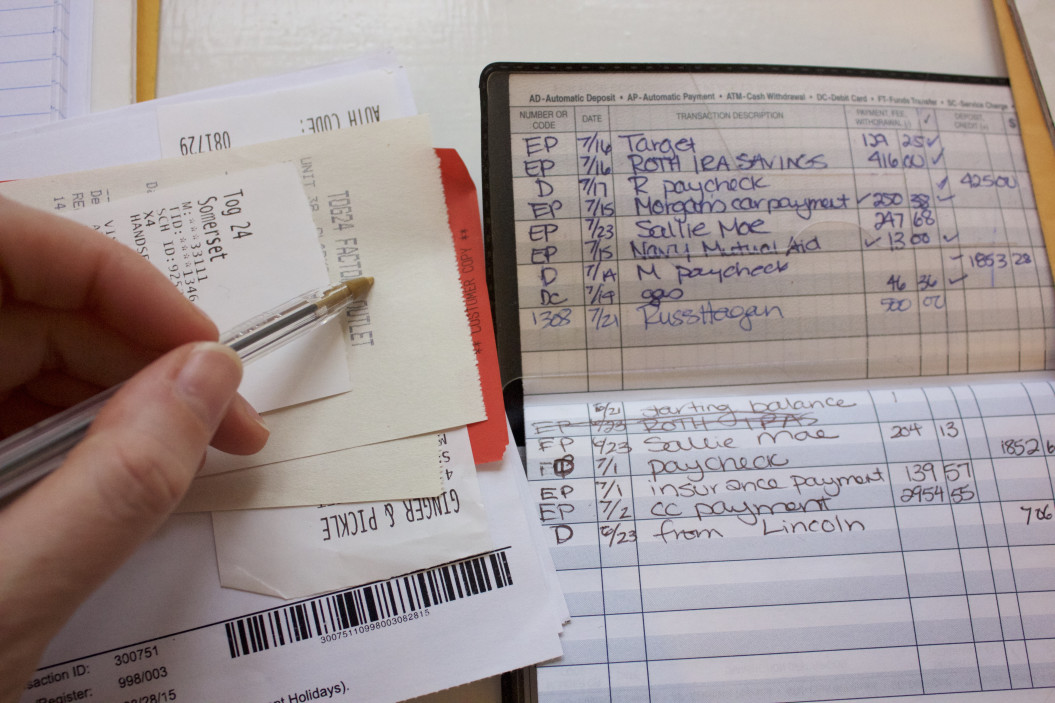 AUTH CODE:
081729
TOG24 FACTO UTLET
UNIT 3B
Tog 24
Somerset
M:***33111
TID:****1346
SCH ID:925
X4
HANDS
** CUSTOMER COPY **
GINGER & PICKLE
30075110998003082815
saction ID: 300751
Register: 998/003
/28/15
t Holidays).
AD-Automatic Deposit • AP-Automatic Payment • ATM-Cash Withdrawal • DC-Debit Card • FT-Funds Transfer • SC-Service Charge •
NUMBER OR CODE DATE TRANSACTION DESCRIPTION PAYMENT, FEE, WITHDRAWAL (-) ✓ DEPOSIT, CREDIT (+) $
EP 7/16 Target 139 25 ✓
EP 7/16 ROTH IRA SAVINGS 416 00 ✓
D 7/17 R paycheck ✓ 425 00
EP 7/15 Morgan's car payment ✓ 250 ✓
EP 7/23 Sallie Mae 247 68
EP 7/15 Navy Mutual Aid ✓ 13 00 ✓
D 7/14 M paycheck ✓ 1853 28
DC 7/19 gas 46 36 ✓
1308 7/21 Russ Hagan 500
starting balance
EP ROTH IRA
EP 6/23 Sallie Mae 204 13
7/1 paycheck 1852 6
EP 7/1 insurance payment 139 57
EP 7/2 cc payment 2954 65
D 6/23 from Lincoln 706